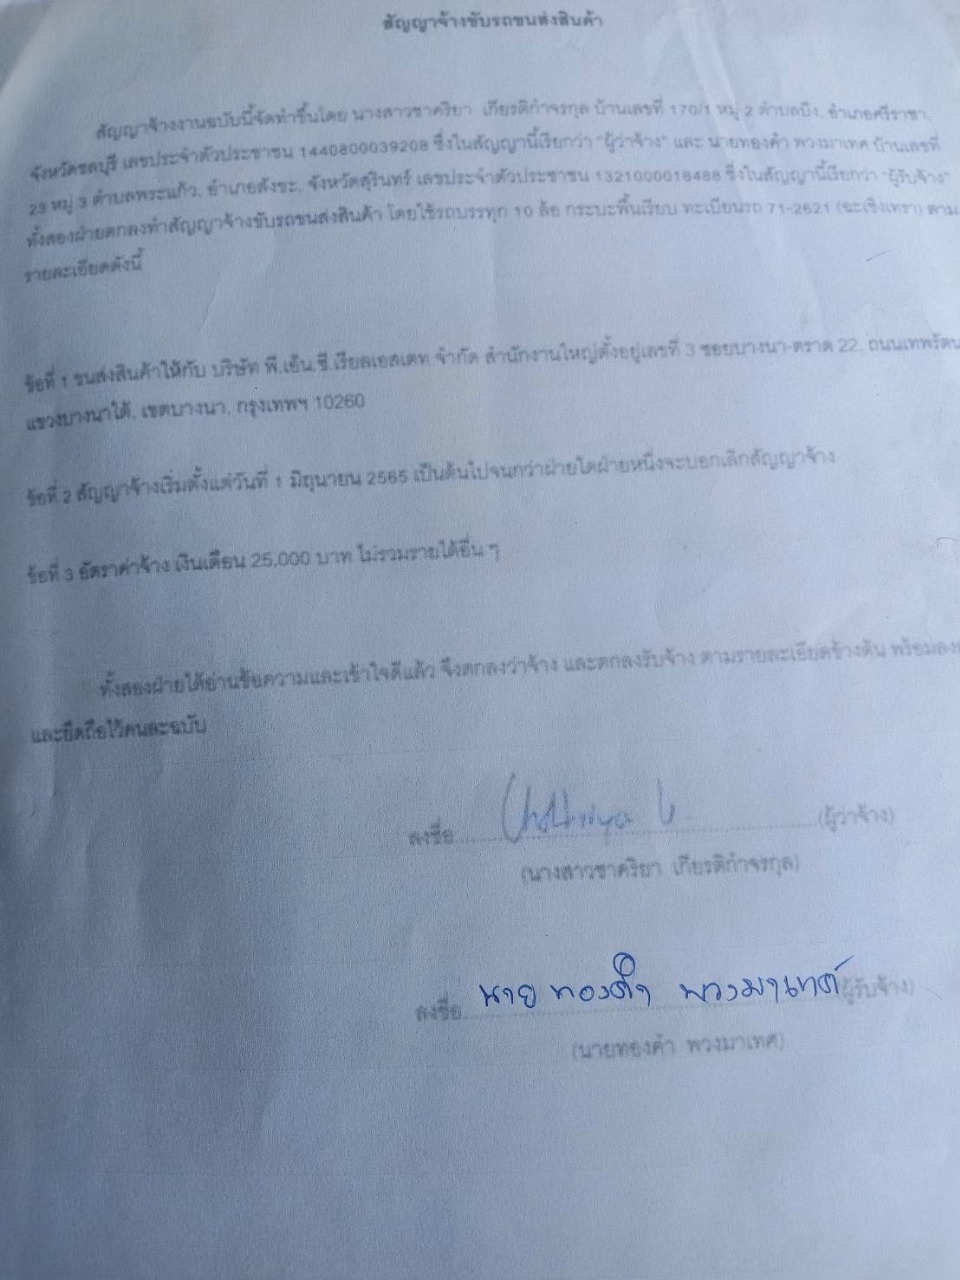 สัญญาจ้างขับรถขนส่งสินค้า
สัญญาจ้างงานฉบับนี้จัดทำขึ้นโดย นางสาวชาคริยา เกียรติกำจรกุล บ้านเลขที่ 170/1 หมู่ 2 ตำบลบึง, อำเภอศรีราชา,
จังหวัดชลบุรี เลขประจำตัวประชาชน 1440800039208 ซึ่งในสัญญานี้เรียกว่า "ผู้ว่าจ้าง" และ นายทองคำ พวงมาเทศ บ้านเลขที่
23 หมู่ 3 ตำบลพระแก้ว, อำเภอสังขะ, จังหวัดสุรินทร์ เลขประจำตัวประชาชน 1321000018488 ซึ่งในสัญญานี้เรียกว่า "ผู้รับจ้าง"
ทั้งสองฝ่ายตกลงทำสัญญาจ้างขับรถขนส่งสินค้า โดยใช้รถบรรทุก 10 ล้อ กระบะพื้นเรียบ ทะเบียนรถ 71-2621 (ฉะเชิงเทรา) ตาม
รายละเอียดดังนี้
ข้อที่ 1 ขนส่งสินค้าให้กับ บริษัท พี.เอ็น.ซี.เรียลเอสเตท จำกัด สำนักงานใหญ่ตั้งอยู่เลขที่ 3 ซอยบางนา-ตราด 22, ถนนเทพรัตน
แขวงบางนาใต้, เขตบางนา, กรุงเทพฯ 10260
ข้อที่ 2 สัญญาจ้างเริ่มตั้งแต่วันที่ 1 มิถุนายน 2565 เป็นต้นไปจนกว่าฝ่ายใดฝ่ายหนึ่งจะบอกเลิกสัญญาจ้าง
ข้อที่ 3 อัตราค่าจ้าง เงินเดือน 25,000 บาท ไม่รวมรายได้อื่น ๆ
ทั้งสองฝ่ายได้อ่านข้อความและเข้าใจดีแล้ว จึงตกลงว่าจ้าง และตกลงรับจ้าง ตามรายละเอียดข้างต้น พร้อมลง
และยึดถือไว้คนละฉบับ
ลงชื่อ.......................(ผู้ว่าจ้าง)
(นางสาวชาคริยา เกียรติกำจรกุล)
ลงชื่อ นาย ทองคำ พวงมาเทศ (ผู้รับจ้าง)
(นายทองคำ พวงมาเทศ)